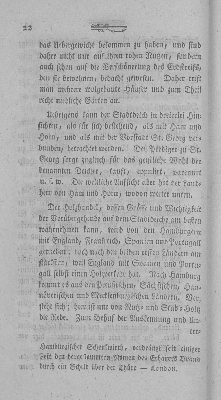 22
das Uebergewicht bekommen zu haben; und sind
daher nicht nur auf ihren rohen Nutzen, sondern
auch schon auf die Verschönerung des Erdkreises,
den sie bewohnen, bedacht gewesen. Daher trifft
man mehrere wolgebaute Häuser und zum Theil
recht niedliche Gärten an.
Uebrigens kann der Stadtdeich in dreierlei Hin-
sichten, als für sich bestehend, als mit Ham und
Horn, und als mit der Vorstadt St. Georg ver-
bunden, betrachtet werden. Der Prediger zu St.
Georg sorgt zugleich für das geistliche Wohl der
benannten Deiche, tauft, copulirt,
u. s. w. Die weltliche Aufsicht aber hat der Land-
herr von Ham und Horn, wovon weiter unten.
Der Holzhandel, dessen Größe und Wichtigkeit
der Vorübergehende auf dem Stadtdeich am besten
wahrnehmen kann, wird von den Hamburgern
mit England, Frankreich, Spanien und Portugall
getrieben, doch nach den beiden ersten Ländern am
stärksten, weil England und Spanien und Portu-
gall selbst einen Holzvorrath hat. Nach Hamburg
kommt es aus den Preußischen, Sächsischen, Han-
növerschen und Mecklenburgischen Ländern. Ver-
steht, hier ist nur von Nutz- und Stab-Holz
die Rede. Zum Behuf der Auskennung und Un-
ter-
Hamburgischer Scheerkniecht, verdrängt seit einiger
Zeit den
durch ein Schild über der Thüre — London.